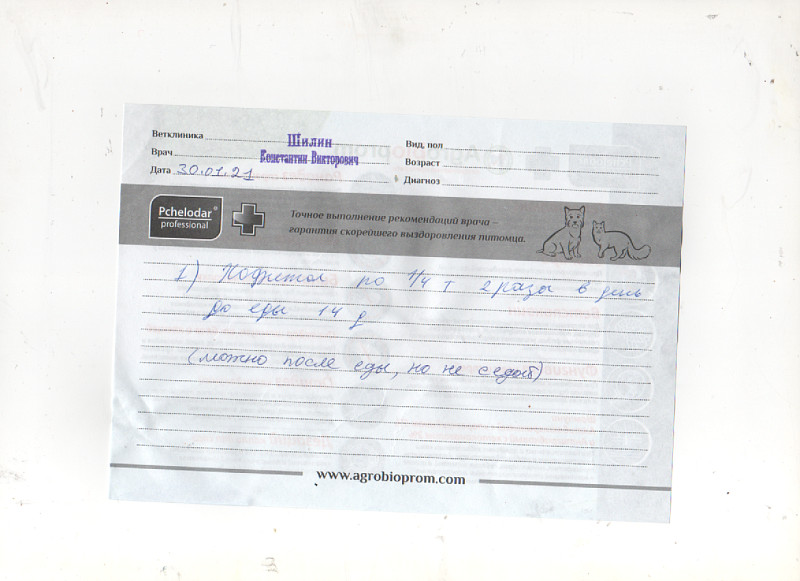 Ветклиника
Шилин
Вид, пол
Врач
Константин Викторович
Возраст
Дата 30.01.21
Диагноз
Pchelodar®
professional
Точное выполнение рекомендаций врача –
гарантия скорейшего выздоровления питомца.
1) Хофитол по 1/4 т 2 раза в день
до еды 14 д
(можно после еды, но не с едой)
www.agrobioprom.com